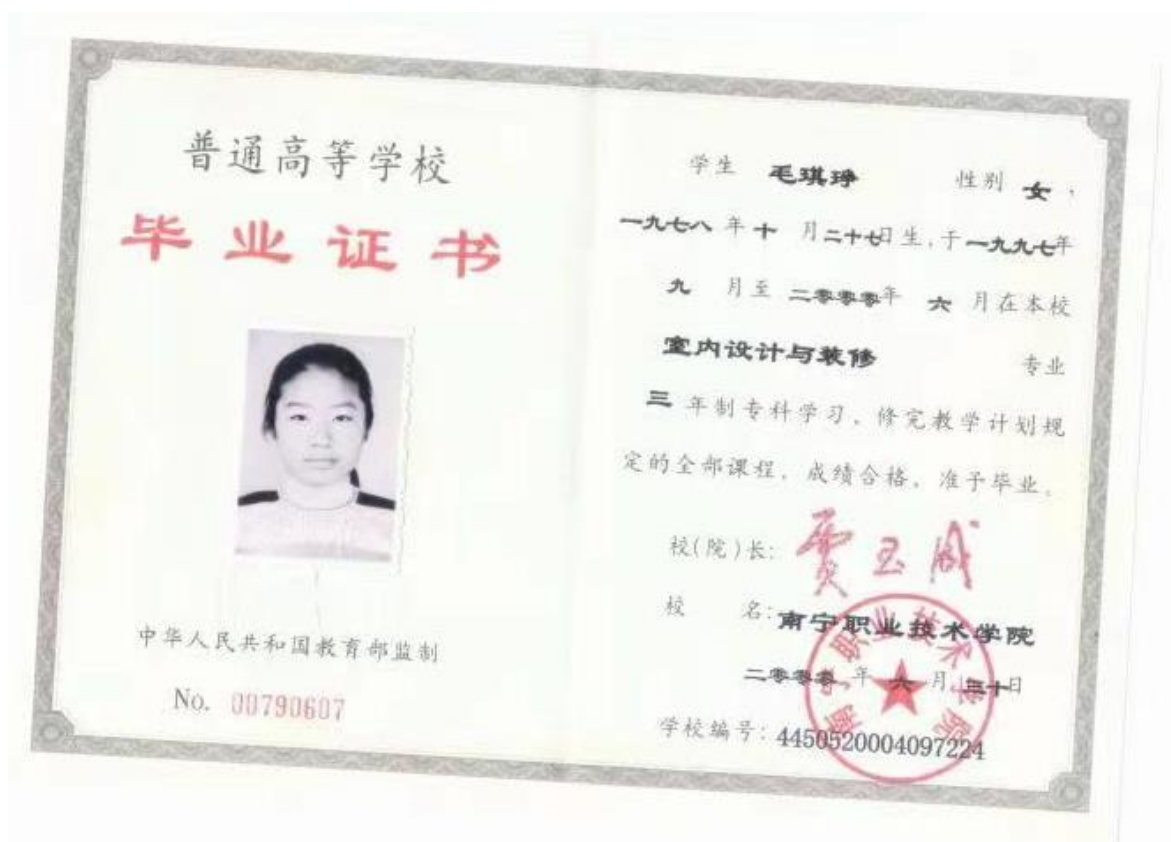 普通高等学校
毕业证书
中华人民共和国教育部监制
No. 00790607
学生 毛琪琤 性别 女，
一九七八 年 十 月 二十七日 生，于 一九九七年
九 月至 二零零零年 六 月在本校
室内设计与装修 专业
三 年制专科学习，修完教学计划规
定的全部课程，成绩合格，准予毕业。
校(院)长: 贾玉成
校 名: 南宁职业技术学院
二零零零 年 六 月 三十日
学校编号: 4450520004097224
南宁职业技术学院